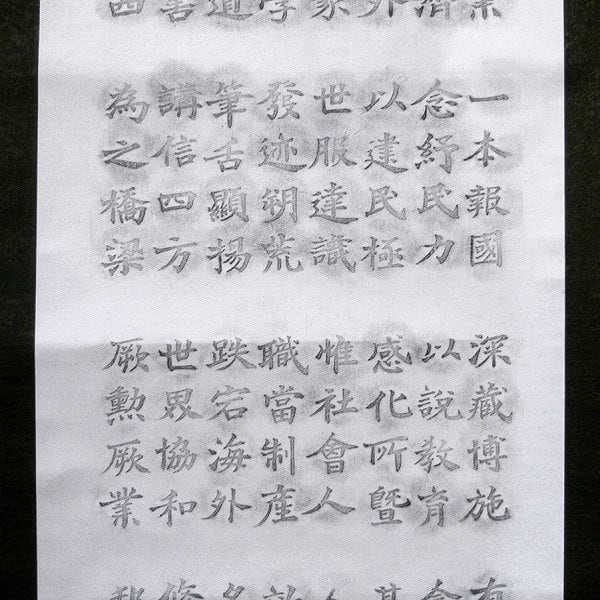 一本報國 深藏博施
念紓民力 以說教育
以建民極 感化所暨
世服達識 惟社會人
發迹朔荒 職當制產
筆舌顯揚 跌宕海外
講信四方 世界協和
為之橋梁 厥勳厥業